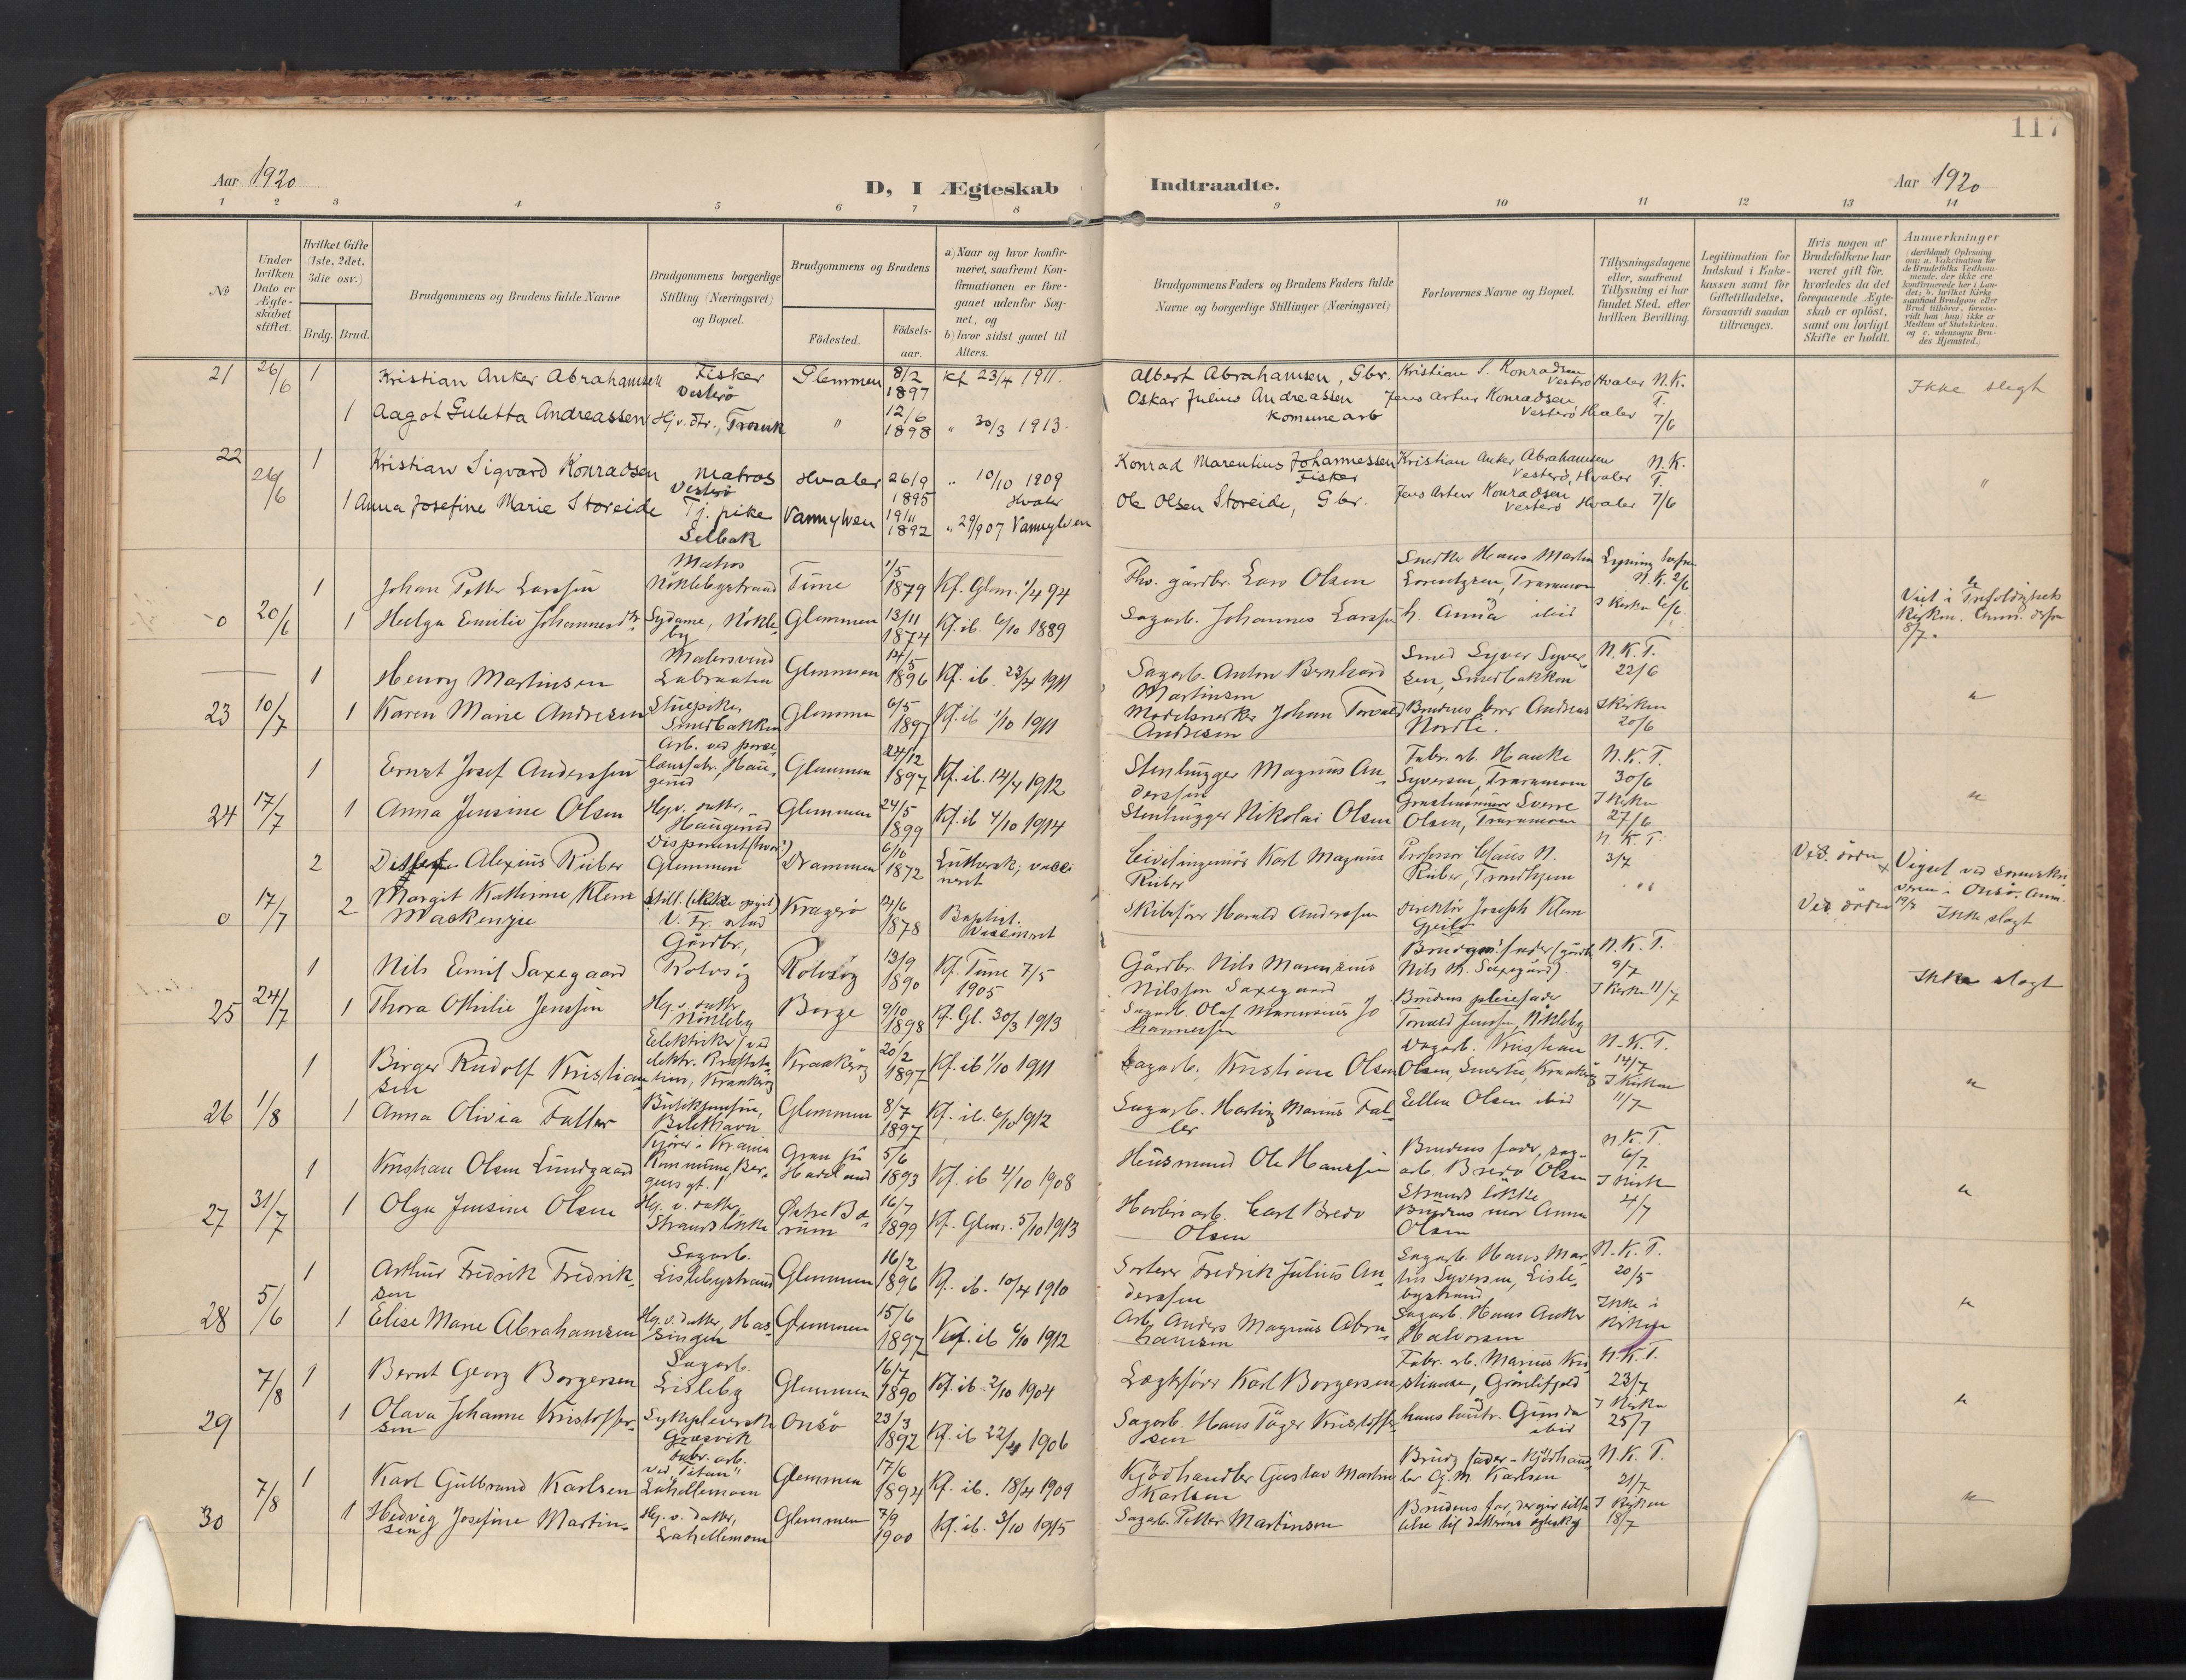 117
Aar 1920
D, I Ægteskab
Indtraadte.
Aar 1920
1 2 3 4 5 6 7 8 9 10 11 12 13 14
№
Under hvilken Dato er Ægteskabet stiftet.
Hvilket Gifte (1ste, 2det, 3die osv.)
Brdg. Brud.
Brudgommens og Brudens fulde Navne
Brudgommens borgerlige Stilling (Næringsvei) og Bopæl.
Brudgommens og Brudens
Fødested.
Fødsels-aar.
a) Naar og hvor konfirmeret, saafremt Konfirmationen er foregaaet udenfor Sognet, og
b) hvor sidst gaaet til Alters.
Brudgommens Faders og Brudens Faders fulde Navne og borgerlige Stillinger (Næringsvei)
Forlovernes Navne og Bopæl.
Tillysningsdagene eller, saafremt Tillysning ei har fundet Sted, efter hvilken Bevilling.
Legitimation for Indskud i Enkekassen samt for Giftetilladelse, forsaavidt saadan tiltrænges.
Hvis nogen af Brudefolkene har været gift før, hvorledes da det foregaaende Ægteskab er opløst, samt om lovligt Skifte er holdt.
Anmærkninger
21 26/6 1 Kristian Anker Abrahamsen Fisker Vesterø Glemmen 8/2 1897 Kf 23/4 1911. Albert Abrahamsen, Gbr. Kristian S. Konradsen Vesterø Hvaler N.K. Ikke slegt
1 Aagot Guletta Andreassen Hj.v.dtr., Trosvik " 12/6 1898 " 30/3 1913. Oskar Julius Andreassen Komunearb Jens Artur Konradsen Vesterø Hvaler T. 7/6
22 26/6 1 Kristian Sigvard Konradsen Matros Vesterø Hvaler 26/9 1895 " 10/10 1909 Hvaler Konrad Marentius Johannessen Fisker Kristian Anker Abrahamsen Vesterø, Hvaler N.K. T. "
1 Anna Josefine Marie Storeide Tj. pike Selbak Vannylven 19/11 1892 " 29/9 07 Vannylven Ole Olsen Storeide, Gbr. Jens Artur Konradsen Vesterø Hvaler 7/6
1 Johan Petter Larssen Matros Nöklebystrand Tune 1/5 1879 Kf. Glem. 1/4 94 Fho. gårdbr. Lars Olsen Hans Martin Lorentzen, N.K. 2/6
0 20/6 1 Helga Emilie Johannesdtr. Sydame, Nökleby Glemmen 13/11 1874 Kf. ib. 6/10 1889 Sagarb. Johannes Larssen h. Anna ibid I Kirken 6/6 Viet i Trefoldigheds Kirken.
1 Henry Martinsen Malersvend Glemmen 14/5 1896 Kf. ib. 23/4 1911 Sagarb. Anton Bernhard Martinsen Smed Syver Syversen, Smedbakken N.K.T. 22/6 "
23 10/7 1 Karen Marie Andresen Stuepike, Smedbakken Glemmen 6/5 1897 Kf. ib 1/10 1911 Modelsnekker Johan Torvald Andresen Brudens bror Andreas Nordli. I Kirken 20/6
1 Ernst Josef Anderssen Arb. ved porcelænsfabr., Haugerud Glemmen 24/12 1897 Kf. ib. 14/4 1912 Stenhugger Magnus Anderssen Fabr. arb. Hauke Syversen, N.K.T. 30/6 "
24 17/7 1 Anna Jensine Olsen Hj.v. datter, Haugerud Glemmen 24/5 1899 Kf. ib 4/10 1914 Stenhugger Nikolai Olsen Sverre Olsen, I Kirken 27/6
2 Alexius Rieber Disponent Glemmen Drammen 6/10 1872 Luthersk, vaccineret Civilingeniør Karl Magnus Rieber Professor Claus N. Rieber, Trondhjem N.K.T. 3/7 Viet ved Onsø. Anm. 19/7
0 17/7 2 Margit Kathrine Klem Mackenzie Kragerø 12/6 1878 Baptist. Vaccineret Skibsfører Harald Anderssen Direktør Joseph Klem Ikke slegt
1 Nils Emil Saxegaard Gårdbr., Rolvsöy Rolvsöy 13/9 1890 Kf. Tune 7/5 1905 Gårdbr. Nils Marenius Nilssen Saxegaard Brudgoms fader (gårdbr. Nils M. Saxegård). N.K.T. 9/7 Ikke slegt
25 24/7 1 Thora Othilie Jenssen Hj. v. datter Nökleby Borge 9/10 1898 Kf. Gl. 30/3 1913 Sagarb. Olaf Marensius Johannessen Brudens pleiefader Torvald Jenssen, Nökleby I Kirke 11/7
1 Birger Rudolf Kristiansen Elektriker (ved elektr. Kraftstation, Kraakeröy Kraakeröy 20/2 1897 Kf. ib 1/10 1911 Sagarb. Kristian Olsen Sagarb. Kristian Olsen, Kraakeröy N.K.T. 14/7 "
26 1/8 1 Anna Olivia Faller Butikjomfru, Glemmen 8/7 1897 Kf. ib. 6/10 1912 Sagarb. Hartvig Marius Faller Ellen Olsen ibid I Kirken 11/7
1 Kristian Olsen Lundgaard Kjører i Kr.ania Kommune, Gran på Hadeland 5/6 1893 Kf. ib 4/10 1908 Husmand Ole Hanssen Brudens fader, sagarb. Bredo Olsen Strandløkke N.K.T. 6/7 "
27 31/7 1 Olga Jensine Olsen Hj. v. datter Strandløkke Østre Bærum 16/7 1899 Kf. Glem. 5/10 1913 Høvleriarb. Carl Bredo Olsen Brudens mor Anna Olsen I Kirk 4/7
1 Arthur Fredrik Fredriksen Sagarb. Lislebystrand Glemmen 16/2 1896 Kf. ib. 10/4 1910 Sorterer Fredrik Julius Anderssen Sagarb. Hans Martin Syversen, Lislebystrand N.K.T. 20/5 "
28 5/6 1 Elise Marie Abrahamsen Hj. v. datter, Hassingen Glemmen 15/6 1897 Kf. ib 6/10 1912 Arb. Anders Magnus Abrahamsen Sagarb. Hans Anker Halvorsen Ikke i Kirken
29 7/8 1 Bernt Georg Borgersen Sagarb. Lisleby Glemmen 16/7 1890 Kf. ib. 2/10 1904 Karl Borgersen Fabr. arb. Marius Kristiansen, Grönlifjeld N.K.T. 23/7 "
1 Olava Johanne Kristoffersen Sykepleierske Græsvik Onsö 23/3 1892 Kf. ib 22/4 1906 Sagarb. Hans Kristoffersen hans hustr. Gunda ibid I Kirken 25/7
30 7/8 1 Karl Gulbrand Karlsen Fabr. arb. ved "Titan" Lahellemoen Glemmen 17/6 1894 Kf. ib. 18/4 1909 Kjödhandler Gustav Martin Karlsen Brudg. fader - Kjödhandler G. M. Karlsen N.K.T. 21/7 "
1 Hedvig Josefine Martinsen Hj. v. datter, Lahellemoen Glemmen 7/9 1900 Kf. ib. 3/10 1915 Sagarb. Petter Martinsen Brudens far, der gir tilladelse til datterens egteskap I Kirken 18/7